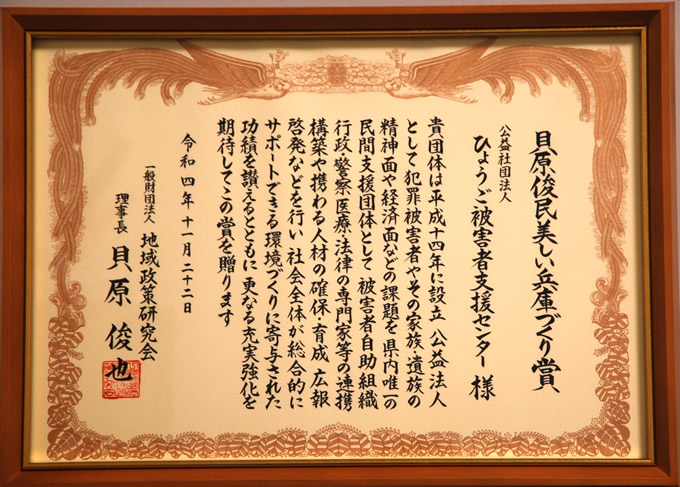 貝原俊民美しい兵庫づくり賞
公益社団法人
ひょうご被害者支援センター 様
貴団体は平成十四年に設立 公益法人
として犯罪被害者やその家族、遺族の
精神面や経済面などの課題を県内唯一の
民間支援団体として 被害者自助組織
行政、警察、医療、法律の専門家等の連携
構築や携わる人材の確保・育成、広報
啓発などを行い 社会全体が総合的に
サポートできる環境づくりに寄与された
功績を讃えるとともに 更なる充実強化を
期待してこの賞を贈ります
令和四年十一月二十二日
一般財団法人 地域政策研究会
理事長 貝原俊也